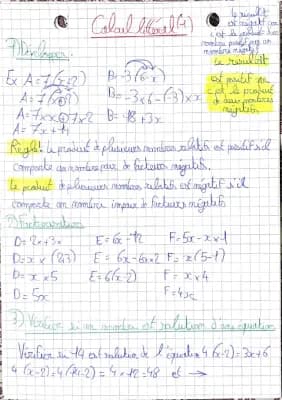 Calcul littéral (4)
le résultat
est négatif car
c'est le produit d'un
nombre positif par un
nombre négatif
le résultat
est positif car
c'est le produit
de deux nombres
négatifs
1) Développer.
Ex A = 7(x+2)
A = 7(x+2)
A = 7×x+7×2
A = 7x+14
B = -3(6-x)
B = -3×6-(-3)×x
B = -18+3x
Règle: Le produit de plusieurs nombres relatifs est positif s'il
comporte un nombre pair de facteurs négatifs.
Le produit de plusieurs nombres relatifs est négatif s'il
comporte un nombre impair de facteurs négatifs
2) Factorisation
D = 2x+3x
D = x×(2+3)
D = x×5
D = 5x
E = 6x-12
E = 6x-6×2
E = 6(x-2)
F = 5x-x×1
F = x(5-1)
F = x×4
F = 4x
3) Vérifier si un nombre est solution d'une équation
Vérifier si 14 est solution de l'équation 4(x-2)=3x+6
4(x-2)=4(14-2)=4×12=48 et →